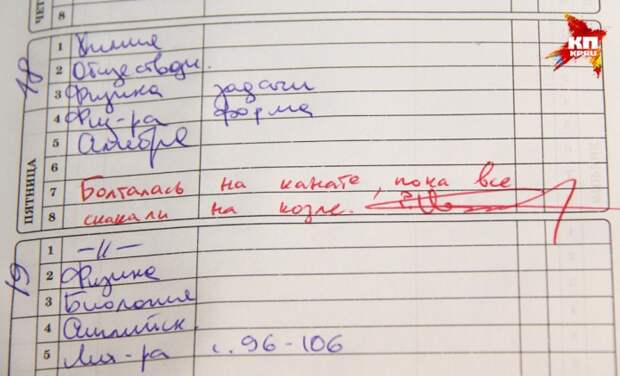 ЧЕТ
8
18
ПЯТНИЦА
1 Химия
2 Обществозн.
3 Физика задачи
4 Физ-ра форма
5 Алгебра
6
7 Болталась на канате, пока все
8 скакали на козле.
19
1 —//—
2 Физика
3 Биология
4 Английск.
5 Лит-ра с. 96-106
КП
KP.RU